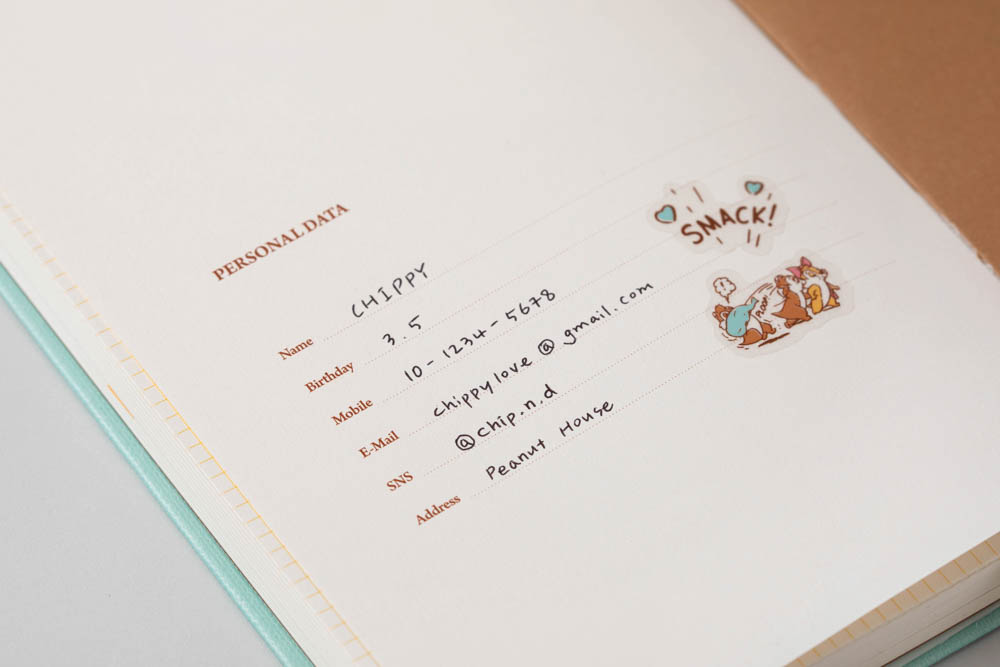 PERSONAL DATA
Name CHIPPY
Birthday 3.5
Mobile 10-1234-5678
E-Mail chippylove@gmail.com
SNS @chip.n.d
Address Peanut House
SMACK!